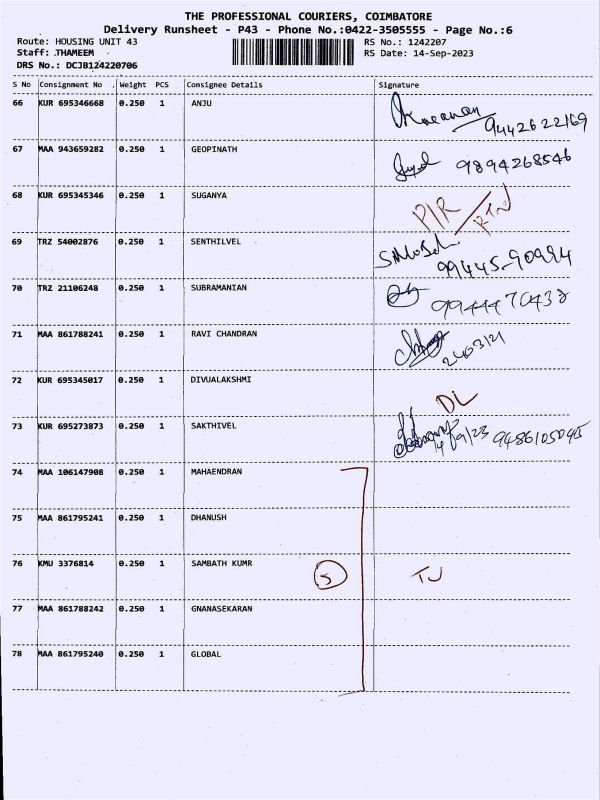 THE PROFESSIONAL COURIERS, COIMBATORE
Delivery Runsheet - P43 - Phone No.:0422-3505555 - Page No.:6
Route: HOUSING UNIT 43 RS No.: 1242207
Staff: .THAMEEM RS Date: 14-Sep-2023
DRS No.: DCJB124220706
S No Consignment No Weight PCS Consignee Details Signature
66 KUR 695346668 0.250 1 ANJU 9442622169
67 MAA 943659282 0.250 1 GEOPINATH 9894268546
68 KUR 695345346 0.250 1 SUGANYA P/R RTN
69 TRZ 54002876 0.250 1 SENTHILVEL 99445-90994
70 TRZ 21106248 0.250 1 SUBRAMANIAN
71 MAA 861788241 0.250 1 RAVI CHANDRAN
72 KUR 695345017 0.250 1 DIVUALAKSHMI DL
73 KUR 695273873 0.250 1 SAKTHIVEL 14/9/23 9486105045
74 MAA 106147908 0.250 1 MAHAENDRAN
75 MAA 861795241 0.250 1 DHANUSH
76 KMU 3376814 0.250 1 SAMBATH KUMR 5
77 MAA 861788242 0.250 1 GNANASEKARAN
78 MAA 861795240 0.250 1 GLOBAL